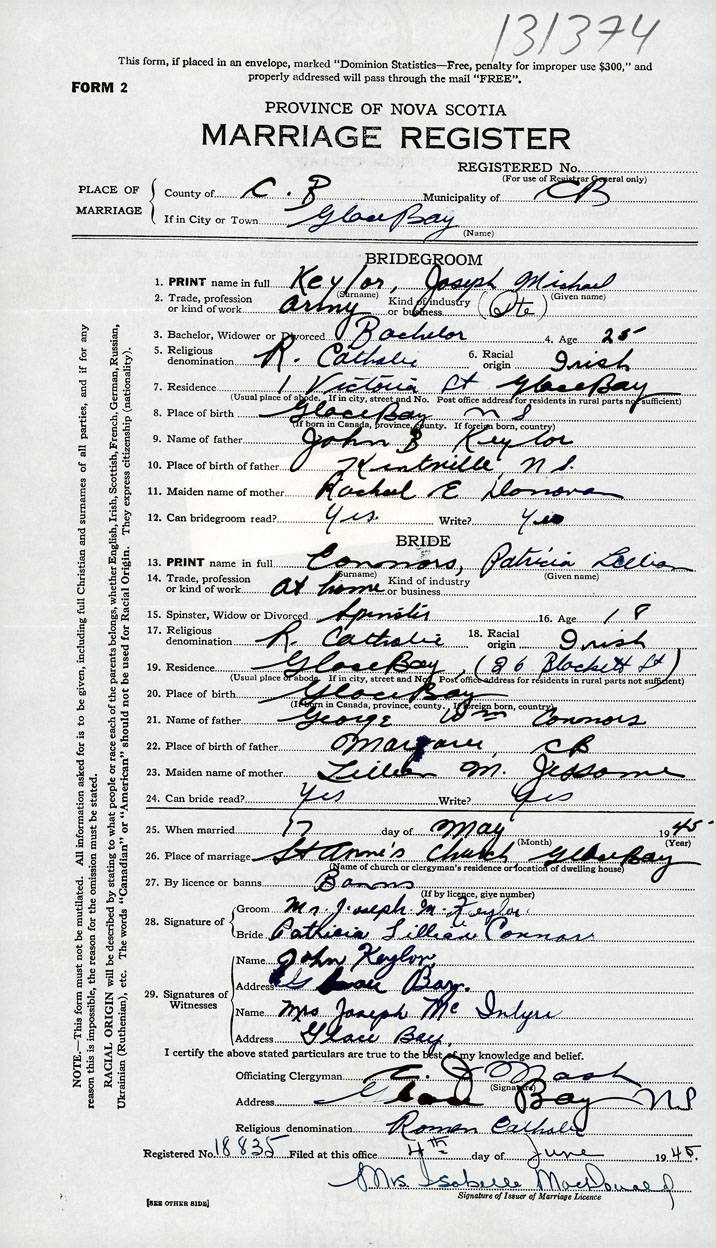 131374
This form, if placed in an envelope, marked "Dominion Statistics—Free, penalty for improper use $300," and
properly addressed will pass through the mail "FREE".
FORM 2
PROVINCE OF NOVA SCOTIA
MARRIAGE REGISTER
REGISTERED No.
(For use of Registrar General only)
PLACE OF MARRIAGE
County of C. B Municipality of CB
If in City or Town Glace Bay
(Name)
BRIDEGROOM
1. PRINT name in full Keylor, Joseph Michael
(Surname) (Given name)
2. Trade, profession or kind of work army Kind of industry or business (Pte)
3. Bachelor, Widower or Divorced Bachelor 4. Age 25
5. Religious denomination R. Catholic 6. Racial origin Irish
7. Residence 1 Victoria St Glace Bay
(Usual place of abode. If in city, street and No. Post office address for residents in rural parts not sufficient)
8. Place of birth Glace Bay N S
(If born in Canada, province, county. If foreign born, country)
9. Name of father John B Keylor
10. Place of birth of father Kintville, N S.
11. Maiden name of mother Rachael E Donovan
12. Can bridegroom read? Yes Write? Yes
BRIDE
13. PRINT name in full Connors, Patricia Lillian
(Surname) (Given name)
14. Trade, profession or kind of work at home Kind of industry or business
15. Spinster, Widow or Divorced Spinster 16. Age 18
17. Religious denomination R. Catholic 18. Racial origin Irish
19. Residence Glace Bay, (86 Blackett St)
(Usual place of abode. If in city, street and No. Post office address for residents in rural parts not sufficient)
20. Place of birth Glace Bay
(If born in Canada, province, county. If foreign born, country)
21. Name of father George Wm Connors
22. Place of father CB
23. Maiden name of mother Lillian M. Jessome
24. Can bride read? Yes Write? Yes
25. When married 17 day of May 1945
(Month) (Year)
26. Place of marriage St Anne's Church Glace Bay
(Name of church or clergyman's residence or location of dwelling house)
27. By licence or banns Banns
(If by licence, give number)
28. Signature of
Groom Mr. Joseph M. Keylor
Bride Patricia Lillian Connors
29. Signatures of Witnesses
Name John Keylor
Address Glace Bay.
Name Mrs Joseph Mc Intyre
Address Glace Bay.
I certify the above stated particulars are true to the best of my knowledge and belief.
Officiating Clergyman C. J Nash
(Signature)
Address Glace Bay NS
Religious denomination Roman Catholic
Registered No. 18835 Filed at this office 4th day of June 1945.
Mrs. Isabelle MacDonald
Signature of Issuer of Marriage Licence
[SEE OTHER SIDE]
NOTE.—This form must not be mutilated. All information asked for is to be given, including full Christian and surnames of all parties, and if for any
reason this is impossible, the reason for the omission must be stated.
RACIAL ORIGIN will be described by stating to what people or race each of the parents belongs, whether English, Irish, Scottish, French, German, Russian,
Ukrainian (Ruthenian), etc. The words "Canadian" or "American" should not be used for Racial Origin. They express citizenship (nationality).